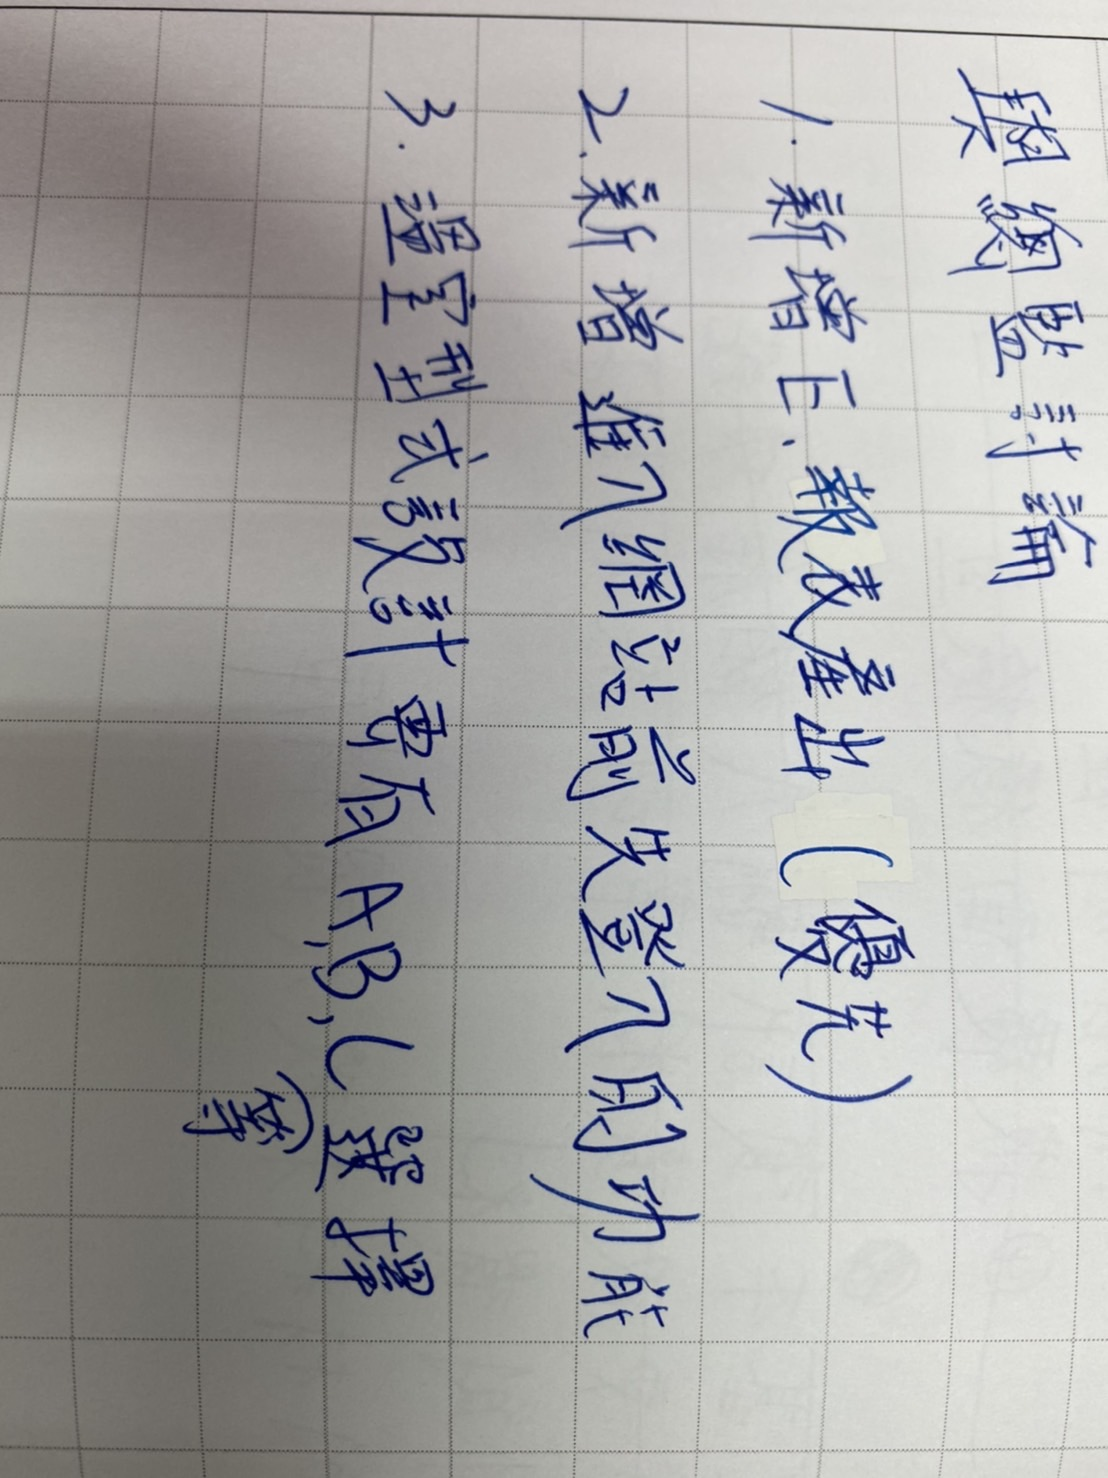 與綱監討論
1. 新增 報表產出 (優先)
2. 新增 進入網站前先登入的功能
3. 溫室型式設計 有 A,B,C 選擇
等